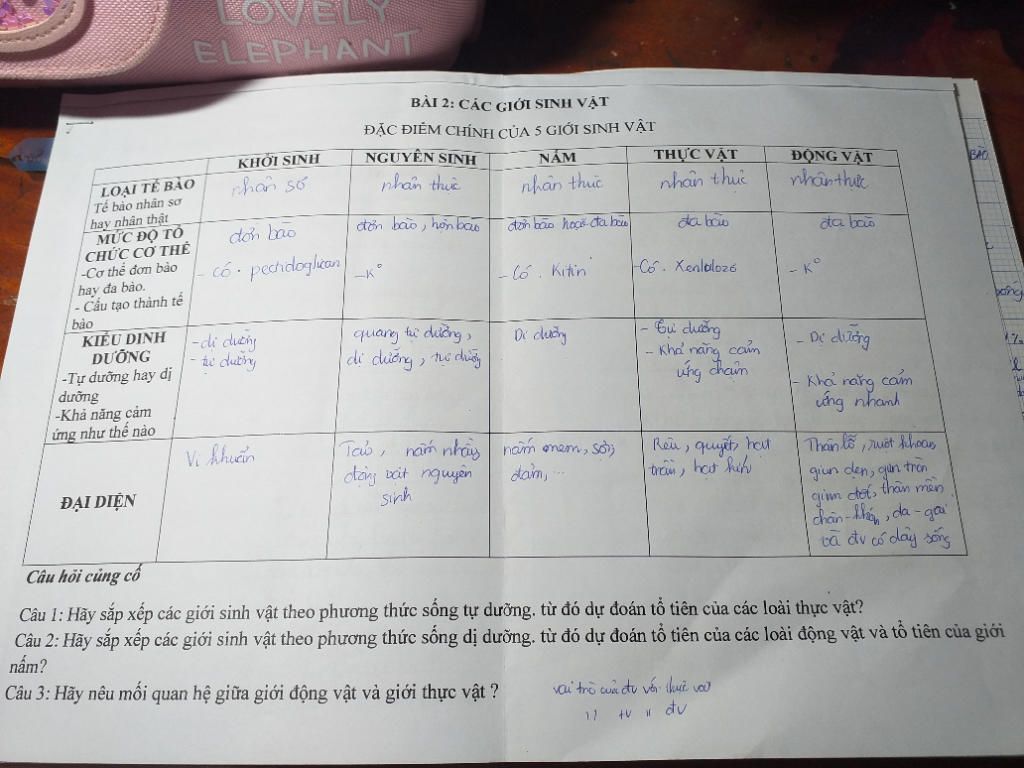 LOVELY
ELEPHANT
BÀI 2: CÁC GIỚI SINH VẬT
ĐẶC ĐIỂM CHÍNH CỦA 5 GIỚI SINH VẬT
KHỞI SINH NGUYÊN SINH NẤM THỰC VẬT ĐỘNG VẬT
LOẠI TẾ BÀO
Tế bào nhân sơ
hay nhân thật
nhân sơ
nhân thực
nhân thực
nhân thực
nhân thực
MỨC ĐỘ TỔ
CHỨC CƠ THỂ
-Cơ thể đơn bào
hay đa bào.
- Cấu tạo thành tế
bào
đơn bào
- có. pectidoglican
đơn bào, hợp bào
- K°
đơn bào hoặc đa bào
- Có. Kitin
đa bào
- Có. Xenlulozơ
đa bào
- K°
KIỂU DINH
DƯỠNG
-Tự dưỡng hay dị
dưỡng
-Khả năng cảm
ứng như thế nào
- dị dưỡng
- tự dưỡng
quang tự dưỡng,
dị dưỡng, tự dưỡng
Dị dưỡng
- Tự dưỡng
- Khả năng cảm
ứng chậm
- Dị dưỡng
- Khả năng cảm
ứng nhanh
ĐẠI DIỆN
Vi khuẩn
Tảo, nấm nhầy,
động vật nguyên
sinh
nấm men, sợi,
đảm,...
Rêu, quyết, hạt
trần, hạt kín
Thân lỗ, ruột khoang,
giun dẹp, giun tròn
giun đốt, thân mềm,
chân khớp, da-gai
và đv có dây sống
Câu hỏi củng cố
Câu 1: Hãy sắp xếp các giới sinh vật theo phương thức sống tự dưỡng. từ đó dự đoán tổ tiên của các loài thực vật?
Câu 2: Hãy sắp xếp các giới sinh vật theo phương thức sống dị dưỡng. từ đó dự đoán tổ tiên của các loài động vật và tổ tiên của giới
nấm?
Câu 3: Hãy nêu mối quan hệ giữa giới động vật và giới thực vật ?
vai trò của đv với thực vật
" tv " đv
BÀO